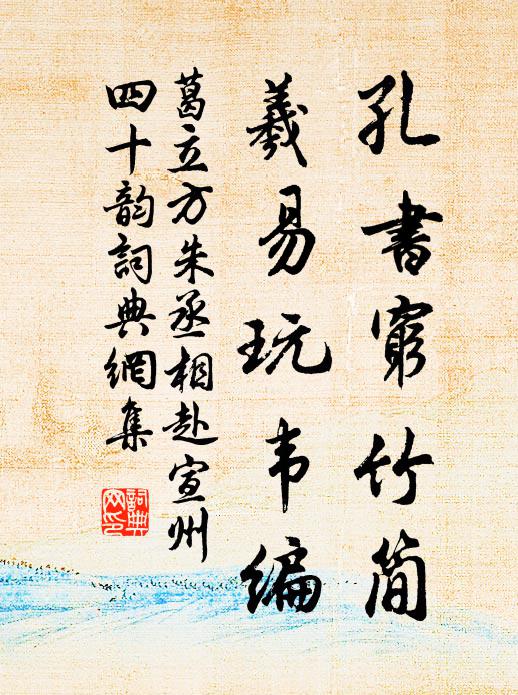 孔書窮竹简
羲易玩韦编
葛立方朱丞相赴宣州
四十韵詞典網集
詞典网印